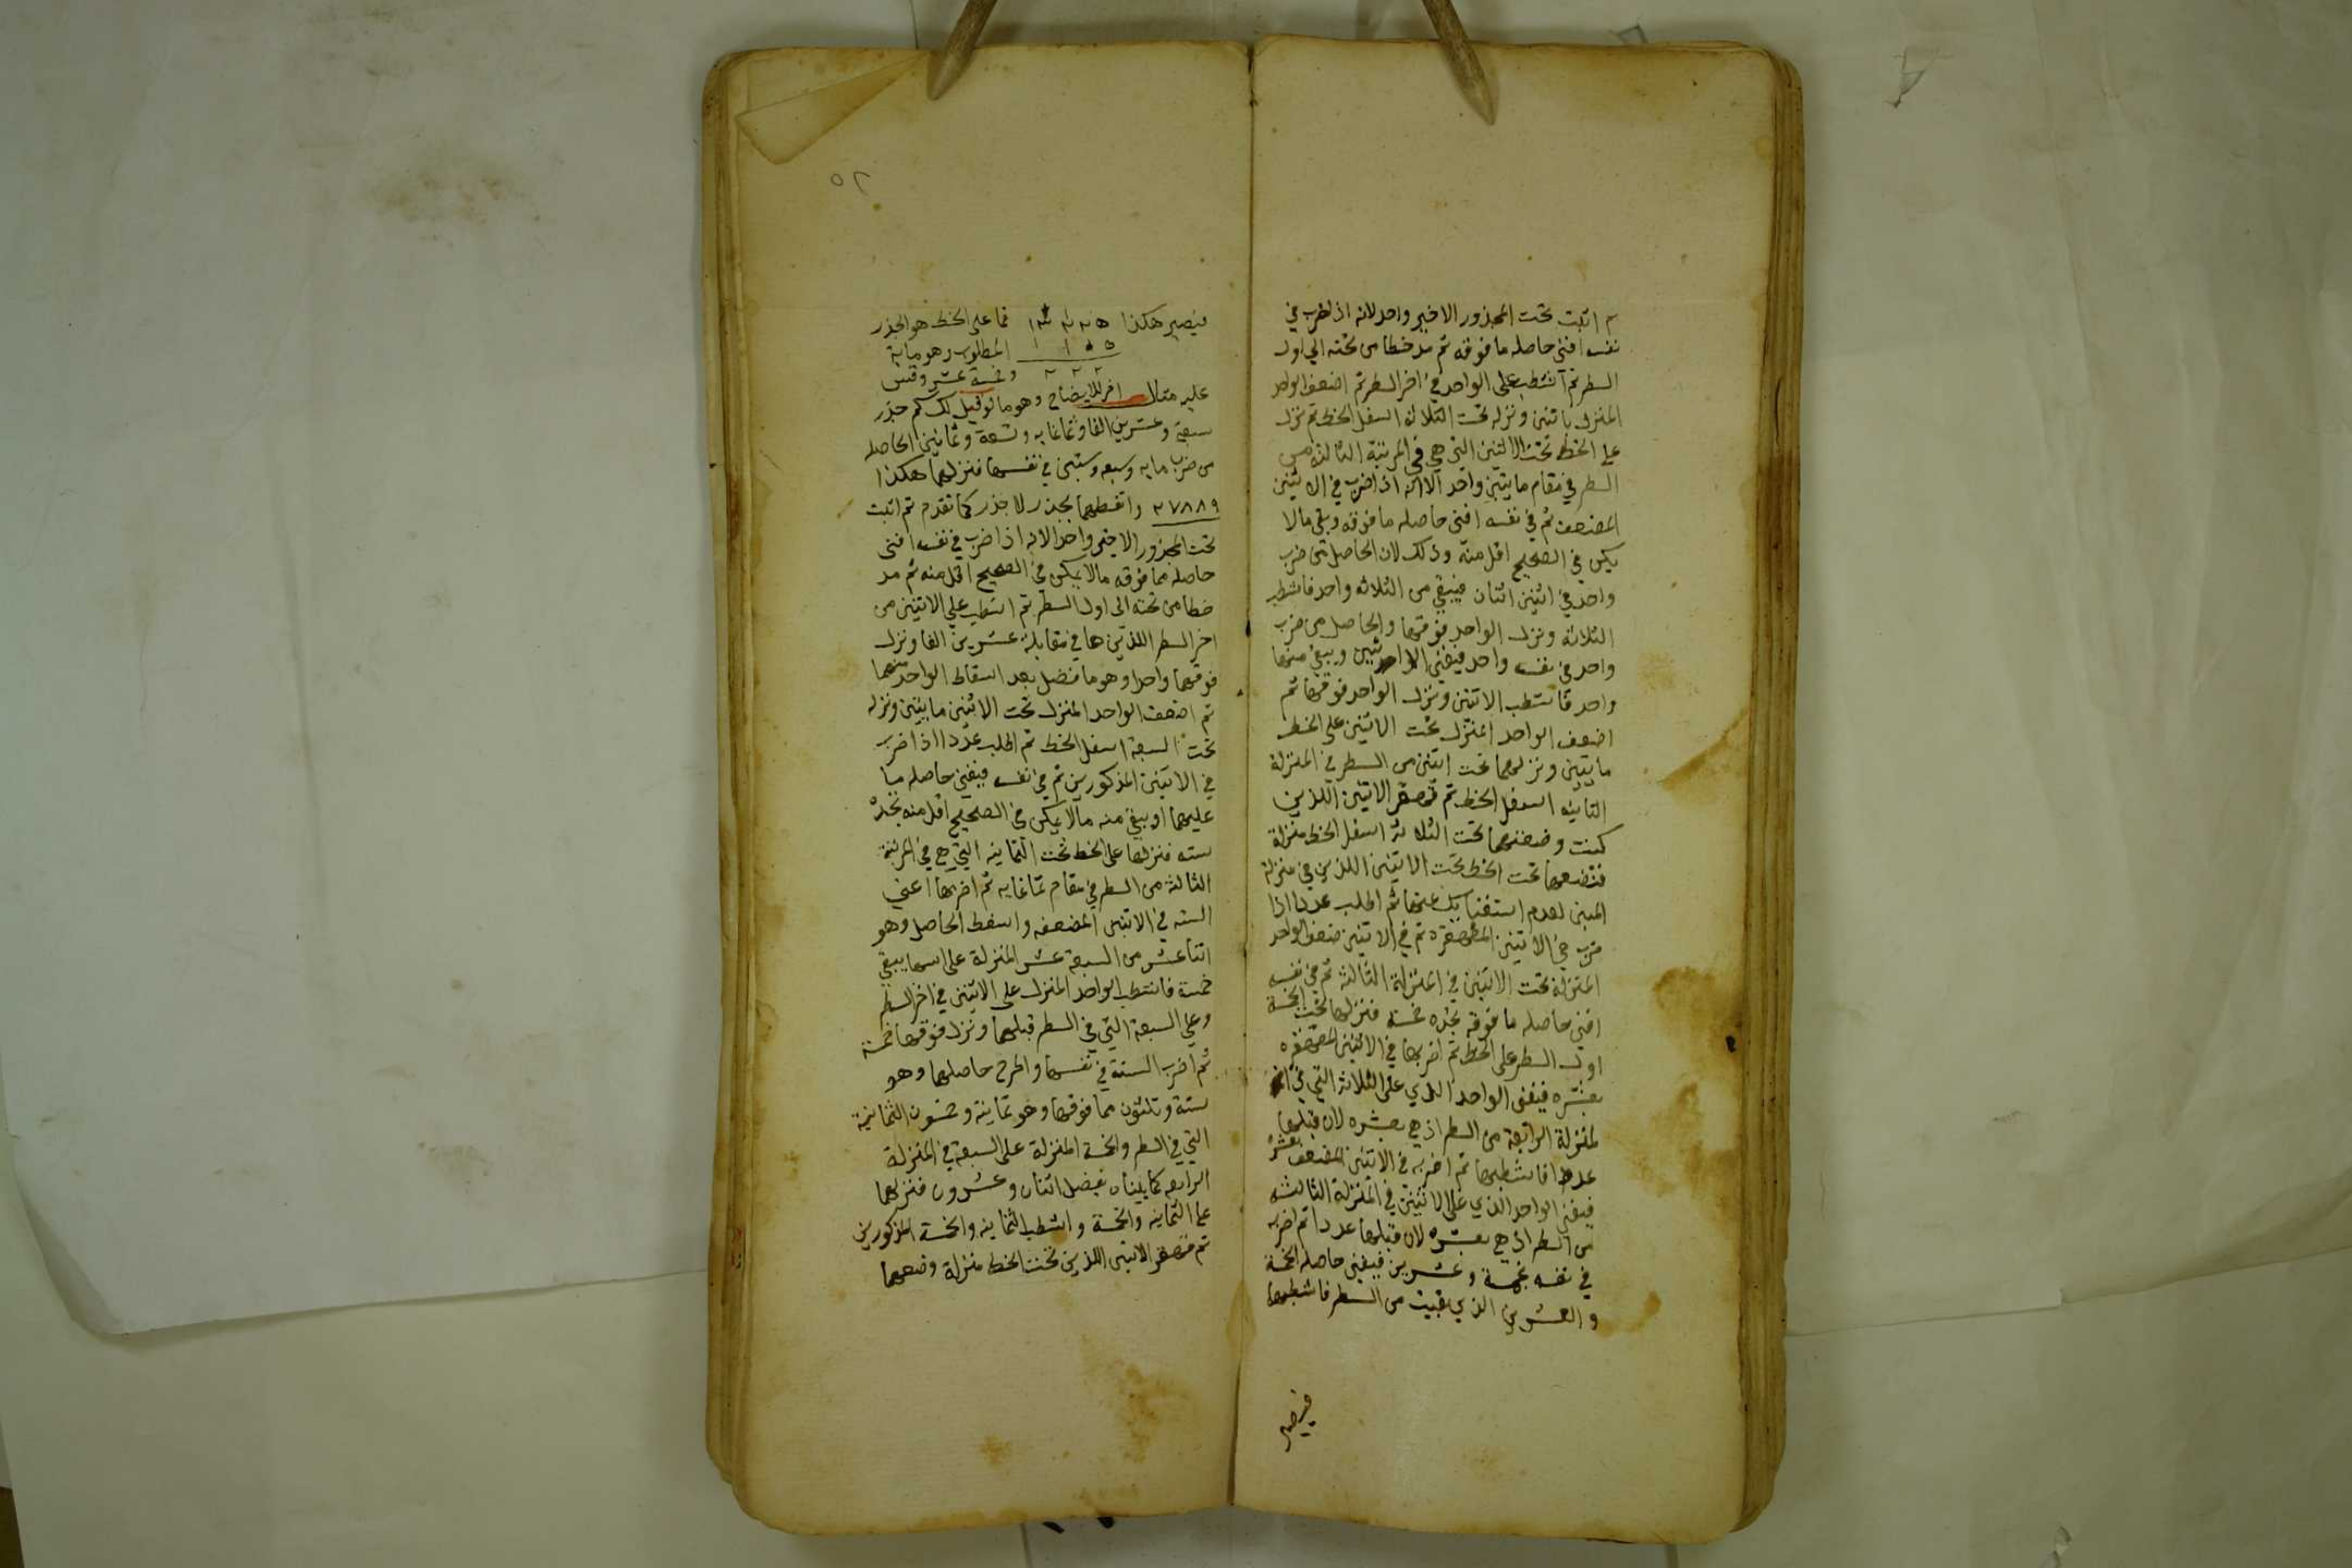 ثم اثبت تحت المجذور الاخير واحد لانه اذا ضرب في
نفسه افنى حاصله ما فوقه ثم مد خطا من تحته الى اول
السطر ثم اشطب على الواحد في اخر السطر ثم اضعف الواحد
المنزل باثنين ونزله تحت الثلاثه اسفل الخط ثم نزل
على الخط تحت الاثنين التي هي في المرتبة الثالثة من
السطر في مقام مايتين واحد الانه اذا ضرب في الاثنين
المضعف ثم في نفسه افنى حاصله ما فوقه وبقي مالا
يكون في الصحيح اقل منه وذلك لان الحاصل من ضرب
واحد في اثنين اثنان فيبقي من الثلاثه واحد فاشطب
الثلاثه ونزل الواحد فوقها والحاصل من ضرب
واحد في نفسه واحد فيفني الاثنين ويبقي منها
واحد فاشطب الاثنين ونزل الواحد فوقها ثم
اضعف الواحد المنزل تحت الاثنين على الخط
باثنين ونزلهما تحت اثنين من السطر في المنزلة
الثانيه اسفل الخط ثم قهقر الاثنين اللذين
كنت وضعتهما تحت الثلاثه اسفل الخط منزلة
فتضعهما تحت الخط تحت الاثنين اللذين في منزلة
المئين لعدم استغنايك عنها ثم اطلب عددا اذا
ضرب في الاثنين المقهقره ثم في الاثنين ضعف الواحد
المنزلة تحت الاثنين في المنزلة الثالثة ثم في نفسه
افنى حاصله ما فوقه تجده خمسة فنزلها تحت الخمسة
اول السطر على الخط ثم اضربها في الاثنين المقهقره
بعشره فيفنى الواحد الذي على الثلاثة التي في
المنزلة الرابعة من السطر اذ هي بعشره لان قبلها
عددا فاشطبها ثم اضربه في الاثنين المضعف بعشره
فيفنى الواحد الذي على الاثنين في المنزلة الثالثه
من السطر اذ هي بعشره لان قبلها عددا ثم اضربه
في نفسه بخمسة وعشرين فيفني حاصله الخمسة
والعشرين الذي بقيت من السطر فاشطبها
فيصير
٥٢
فيصير هكذا ١٣٢٢٥ فما على الخط هو الجذر
١ ١ ٥ المطلوب وهو ماية
٢ ٢ ٢ وخمسة عشر وقس
عليه مثال اخر للايضاح وهو ما لو قيل لك كم جذر
سبعة وعشرين الفا وثمانمايه وتسعة وثمانين الحاصله
من ضرب مايه وسبعه وستين في نفسها فنزلها هكذا
٢٧٨٨٩ وانقطها بجذر لا جذر كما تقدم ثم اثبت
تحت المجذور الاخير واحد الانه اذا ضرب في نفسه افنى
حاصله مما فوقه مالا يكون في الصحيح اقل منه ثم مد
خطا من تحته الى اول السطر ثم اشطب على الاثنين من
اخر السطر اللذين هما في مقابلة عشرين الفا ونزل
فوقهما واحدا وهو ما فضل بعد اسقاط الواحد منهما
ثم اضعف الواحد المنزل تحت الاثنين باثنين ونزله
تحت السبعة اسفل الخط ثم اطلب عددا اذا ضرب
في الاثنين المذكورين ثم في نفسه فيفنى حاصله ما
عليهما او يبقي منه مالا يكون في الصحيح اقل منه تجده
سته فنزلها على الخط تحت الثمانيه التي هي في المرتبة
الثالثة من السطر في مقام ثمانمايه ثم اضربها اعني
السته في الاثنين المضعفه واسقط الحاصل وهو
اثنا عشر من السبعة عشر المنزلة على اسها يبقي
خمسة فاشطب الواحد المنزل على الاثنين في اخر السطر
وعلى السبعة التي في السطر قبلها ونزل فوقها خمسة
ثم اضرب الستة في نفسها واطرح حاصلها وهو
ستة وثلثون مما فوقها وهو ثمانية وخمسون الثمانية
التي في السطر والخمسة المنزلة على السبعة في المنزلة
الرابعه كما بيناه يفضل اثنان وعشرون فنزلهما
على الثمانيه والخمسة واشطب الثمانيه والخمسة المذكورين
ثم قهقر الاثنين اللذين تحت الخط منزلة وضعهما